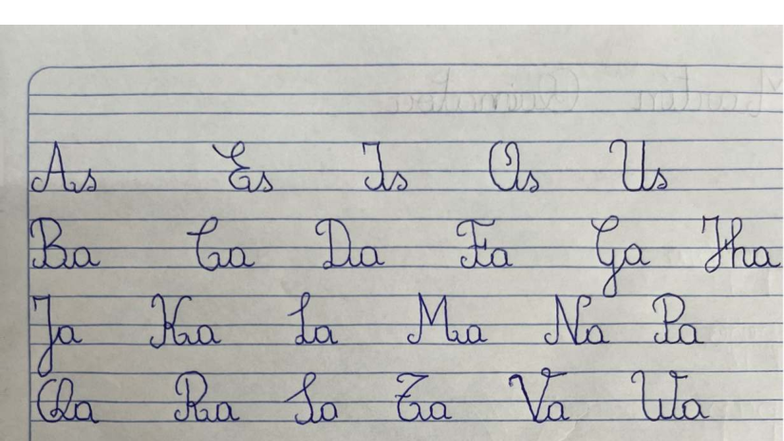 As Es Is Os Us
Ba Ca Da Fa Ga Ha
Ja Ka La Ma Na Pa
Qa Ra Sa Ta Va Wa